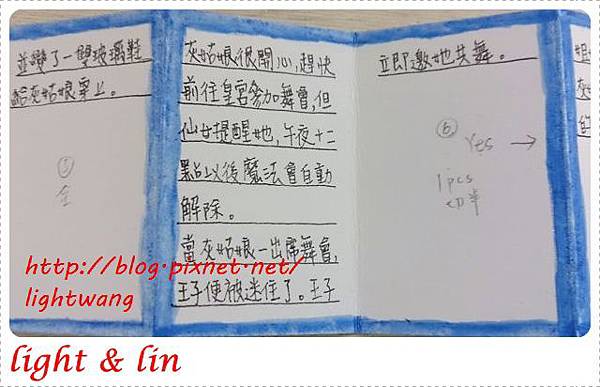 並變了一雙玻璃鞋
給灰姑娘穿上。
⑤
全
灰姑娘很開心，趕快
前往皇宮參加舞會，但
仙女提醒她，午夜十二
點以後魔法會自動
解除。
當灰姑娘一出席舞會，
王子便被迷住了。王子
立即邀她共舞。
⑥
Yes →
1pcs
http://blog.pixnet.net/
lightwang
light & lin